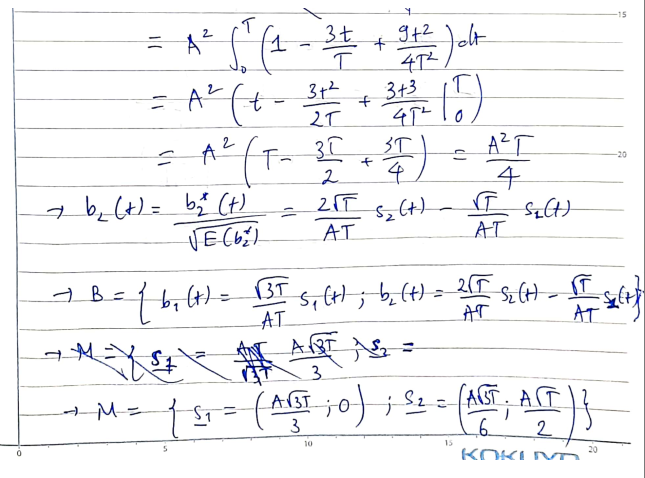 15
= A² ∫₀ᵀ (1 - 3t/T + 9t²/4T²) dt
= A² (t - 3t²/2T + 3t³/4T² |₀ᵀ)
= A² (T - 3T/2 + 3T/4) = A²T/4
20
→ b₂(t) = b₂*(t)/√E(b₂*) = 2√T/AT s₂(t) - √T/AT s₁(t)
→ B = { b₁(t) = √3T/AT s₁(t) ; b₂(t) = 2√T/AT s₂(t) - √T/AT s₁(t)}
→ M = { s₁ = A√3T/3 ; s₂ =
→ M = { s₁ = (A√3T/3 ; 0) ; s₂ = (A√3T/6 ; A√T/2)}
0 5 10 15 20
KOKUYO